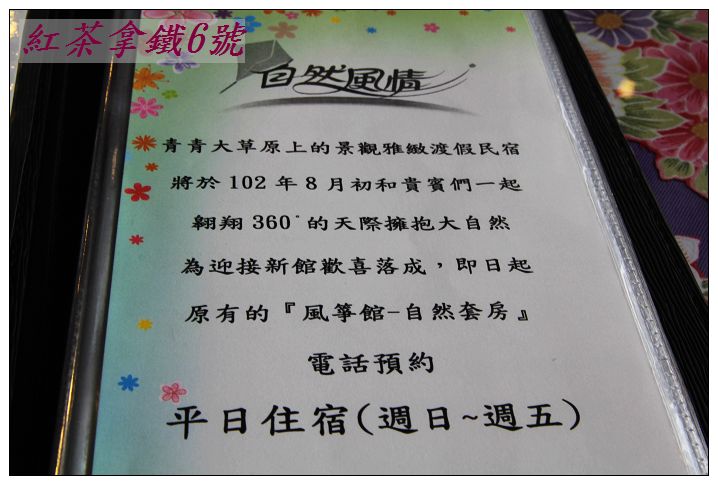 紅茶拿鐵6號
自然風情
青青大草原上的景觀雅緻渡假民宿
將於 102 年 8 月初和貴賓們一起
翱翔 360° 的天際擁抱大自然
為迎接新館歡喜落成，即日起
原有的『風箏館-自然套房』
電話預約
平日住宿(週日~週五)